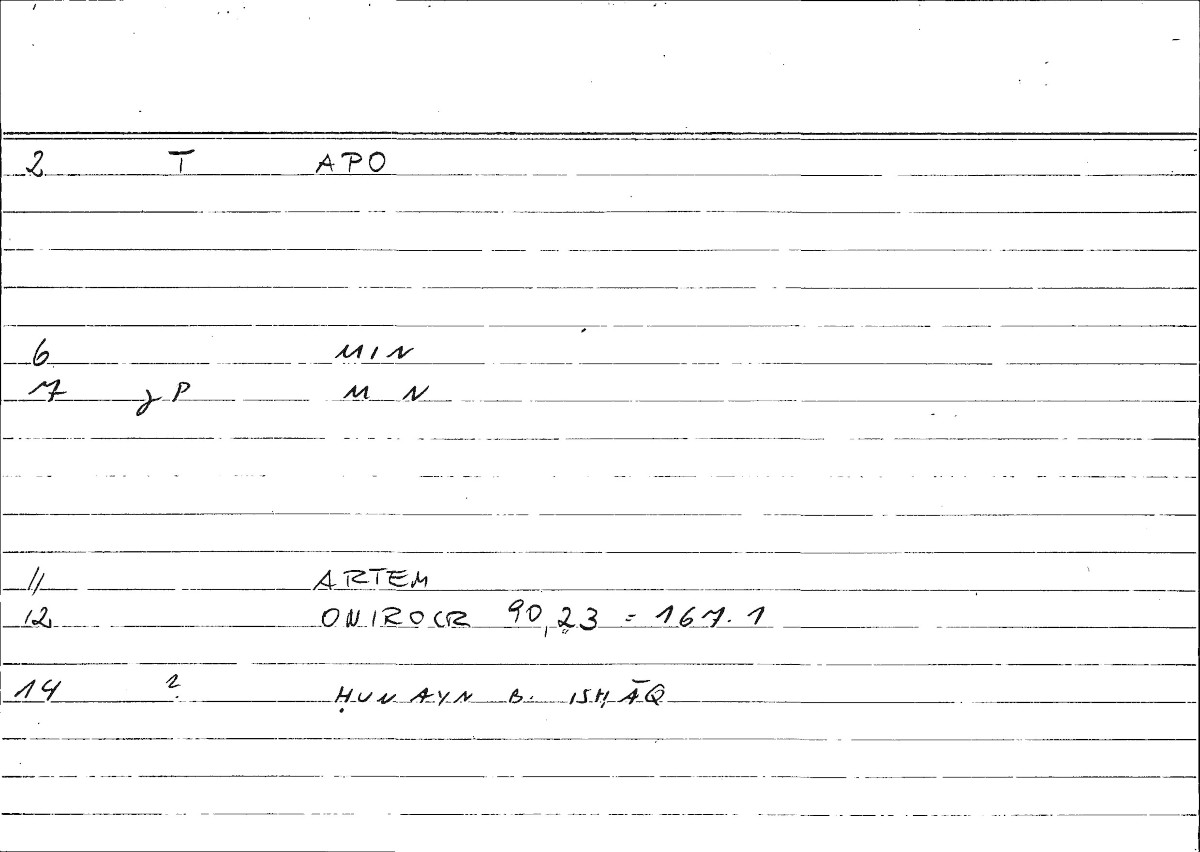 2 T APO
6 MIN
7 P M N
11 ARTEM
12 ONIROCR 90,23 = 167.1
14 ? ḤUNAYN B. ISḤĀQ